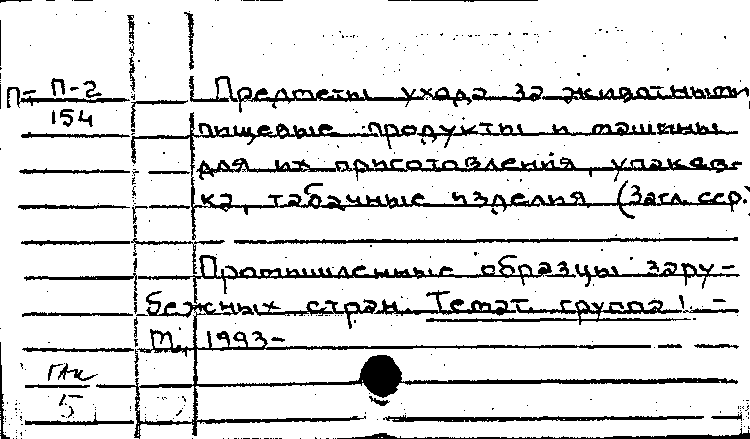 Пт П-2
154
Предметы ухода за животными
пищевые продукты и машины
для их приготовления, упаков-
ка, табачные изделия (Загл. сер.)
Промышленные образцы зару-
бежных стран. Темат. группа 1. -
М., 1993-
5